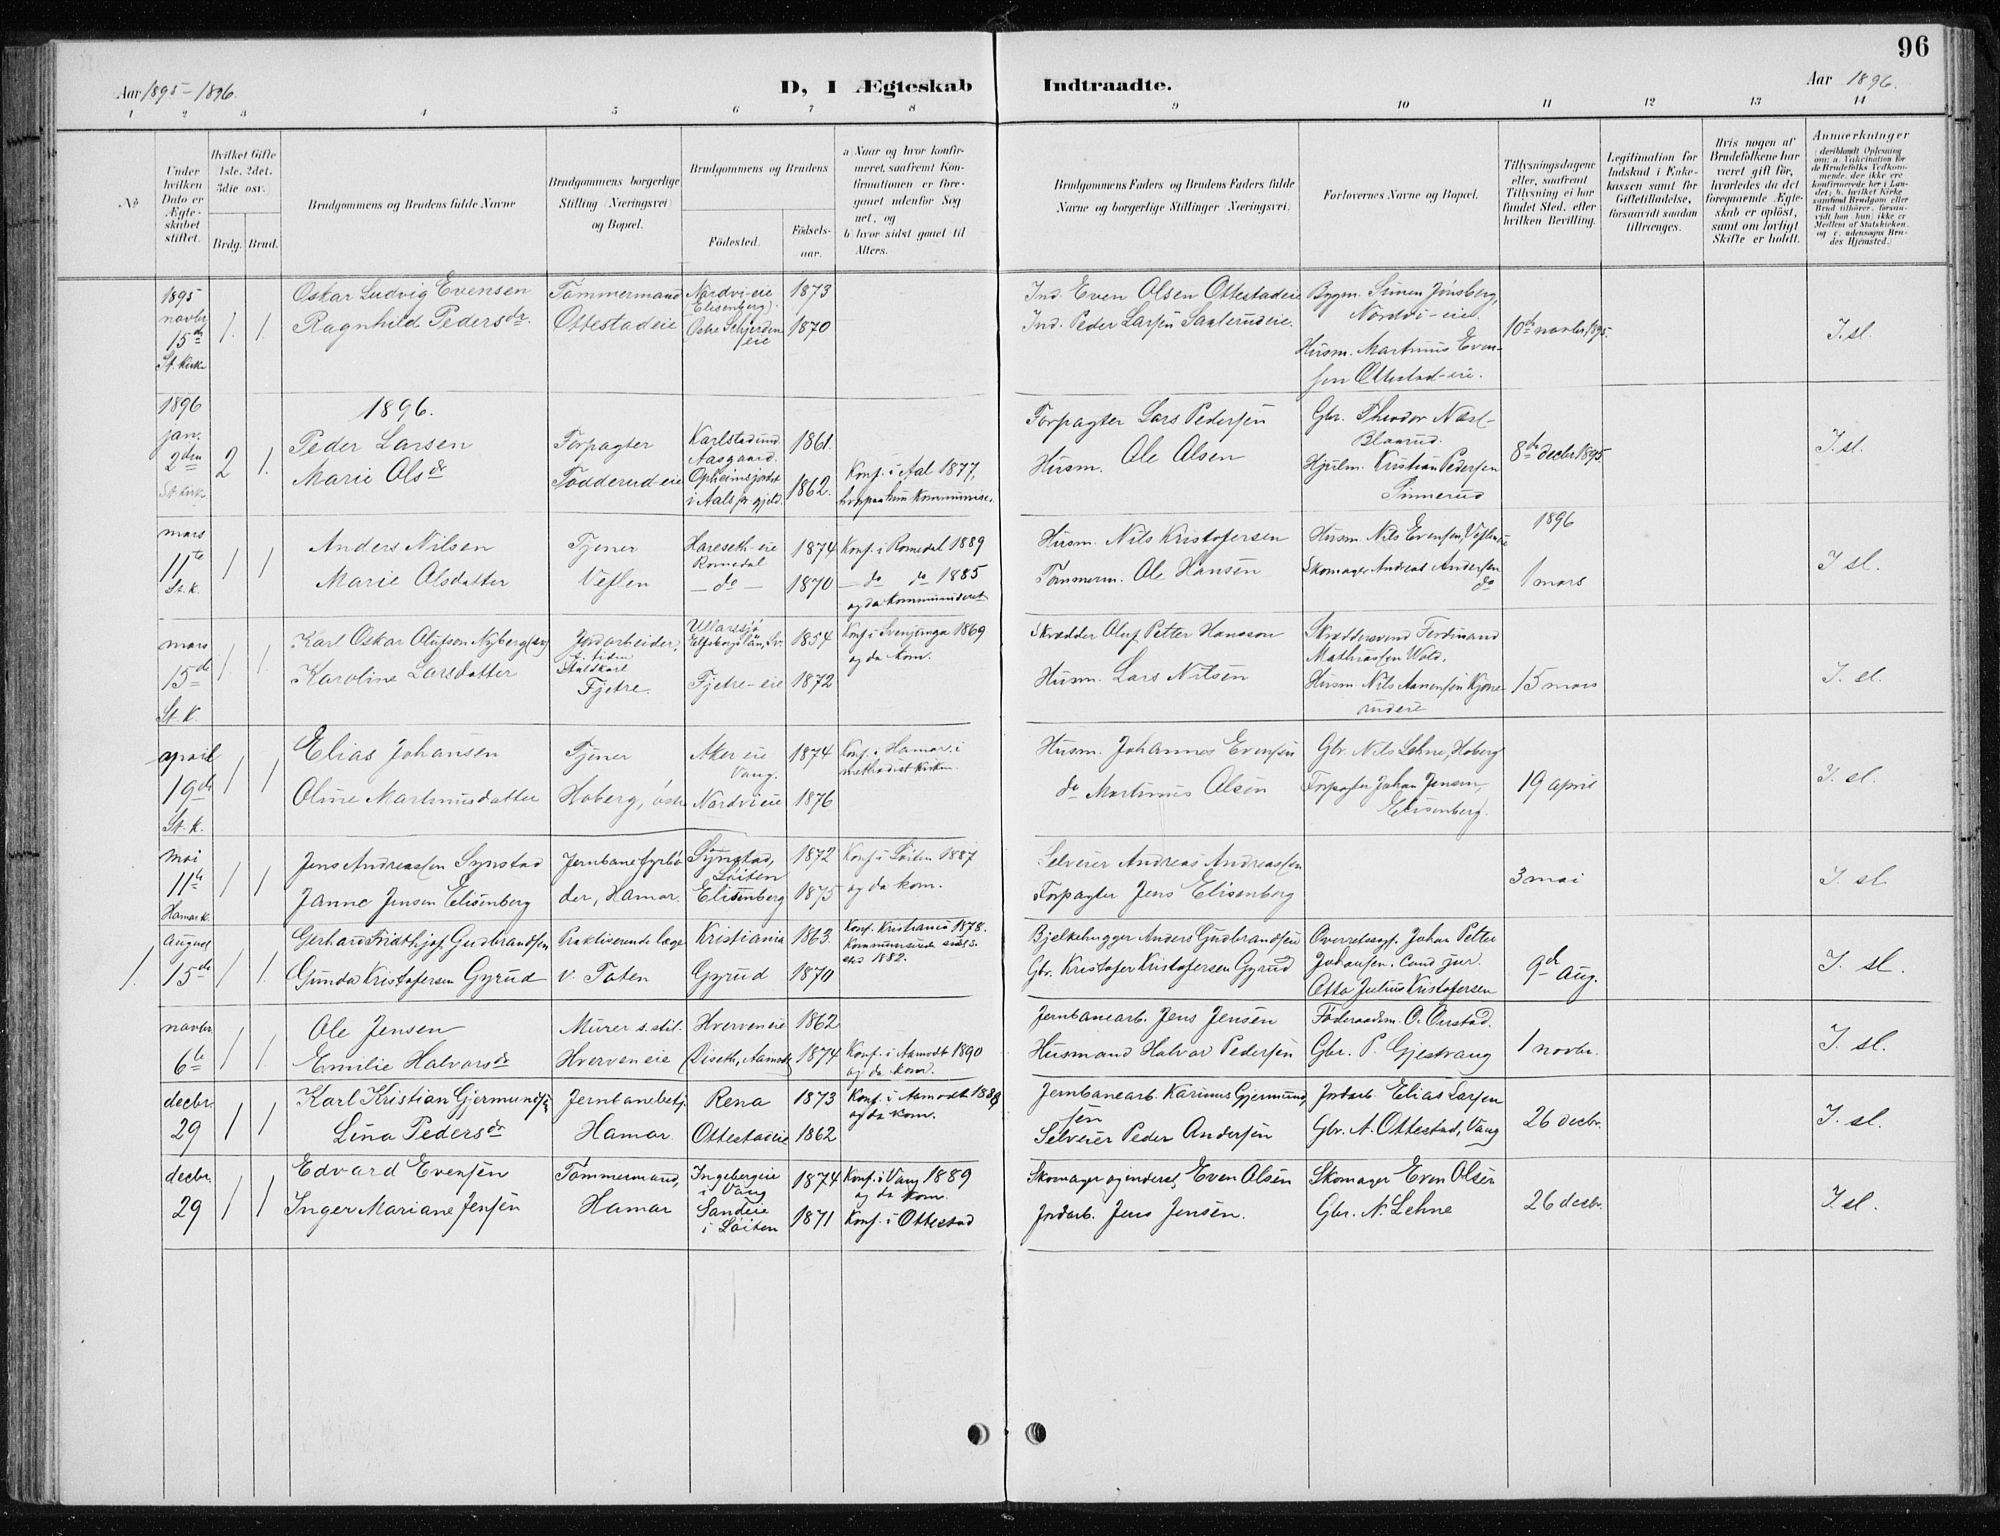 96
Aar 1895-1896.
D, I Ægteskab Indtraadte.
Aar 1896.
1 2 3 4 5 6 7 8 9 10 11 12 13 14
No
Under hvilken Dato er Ægteskabet stiftet.
Hvilket Gifte 1ste, 2det, 3die osv.
Brdg. Brud.
Brudgommens og Brudens fulde Navne
Brudgommens borgerlige Stilling (Næringsvei) og Bopæl.
Brudgommens og Brudens
Födested.
Födselsaar.
a) Naar og hvor konfirmeret, saafremt Konfirmationen er foregaaet udenfor Sognet, og
b) hvor sidst gaaet til Alters.
Brudgommens Faders og Brudens Faders fulde Navne og borgerlige Stillinger (Næringsvei)
Forlovernes Navne og Bopæl.
Tillysningsdagene eller, saafremt Tillysning ei har fundet Sted, efter hvilken Bevilling.
Legitimation for Indskud i Enkekassen samt for Giftetilladelse, forsaavidt saadan tiltrænges.
Hvis nogen af Brudefolkene har været gift för, hvorledes da det foregaaende Ægteskab er oplöst, samt om lovligt Skifte er holdt.
Anmerkninger
1895 novbr 15de St. kirke
1. 1.
Oskar Ludvig Evensen
Ragnhild Pedersdr.
Tömmermand
Ottestadeie
Nordvi-eie (Elisenberg).
Östre Schjerden eie
1873
1870
Ind. Even Olsen Ottestadeie
Ind. Peder Larsen Saaterudeie.
Bygm. Simen Jönsberg, Nordvi-eie.
Husm. Martinus Evensen Ottestad-eie.
10de novbr. 1895.
I. sl.
1896 jan. 2den St. kirke
2 1.
1896.
Peder Larsen
Marie Olsdr
Forpagter
Todderud-eie
Karlstadsund Aasgaard.
Opheimsjordet i Aals pr.gjeld.
1861.
1862.
Konf. i Aal 1877,
Forpagter Lars Pedersen
Husm. Ole Olsen
Gbr. Theodor Næsl-Blaarud.
Hjulm. Kristian Pedersen Finnerud
8de decbr 1895.
I sl.
mars 11te St. k.
1 1
Anders Nilsen
Marie Olsdatter
Tjener
Veflen
Hareseth-eie Romedal
— do —
1874
1870
Konf. i Romedal 1889
— do do 1885
og da kommuniceret
Husm. Nils Kristofersen
Tömmerm. Ole Hansen
Husm. Nils Evensen, Veflen eie
Skomager Andreas Andersen do
1896
1 mars
I sl.
mars 15de St. k.
1. 1.
Karl Oskar Olufson Nyberg (sv)
Karoline Larsdatter
Jordarbeider, f. tiden Staldkarl
Fjetre.
Elfsborgs län, Sv.
Fjetre-eie
1854
1872
Konf. i Svenljunga 1869
og da kom.
Skrædder Oluf Petter Hansson
Husm. Lars Nilsen
Skræddersvend Ferdinand Mathiassen Wold.
Husm. Nils Aanensen Kjonerudeie
15 mars
I. sl.
april 19de St. k.
1 1
Elias Johansen
Oline Martinusdatter
Tjener
Hoberg, östre
Aker eie Vang.
Nordvieie
1874
1876
Konf. i Hamar i methodistkirken.
Husm. Johannes Evensen
do Martinus Olsen
Gbr. Nils Lehne, Hoberg
Forpagter Johan Jensen, Elisenberg.
19 april
I. sl.
mai 11te Hamar k.
1 1
Jens Andreassen Synstad
Janne Jensen Elisenberg
Jernbanefyrböder, Hamar.
Synstad, Löiten
Elisenberg
1872
1875
Konf. i Löiten 1887
og da kom.
Selveier Andreas Andreassen
Forpagter Jens Elisenberg
3 mai
I. sl.
1.
august 15de
1 1.
Gerhard Fridthjof Gudbrandsen
Gunda Kristofersen Gyrud
Praktiserende læge
v. Toten
Kristiania
Gyrud
1863.
1870
Konf. Kristiania 1878.
Kommunicerede sidst 1882.
Bjelkehugger Anders Gudbrandsen
Gbr. Kristofer Kristofersen Gyrud
Overretssagf. Johan Petter Johansen. Cand jur.
Otto Julius Kristofersen
9de Aug.
I. sl.
novbr. 6te
1 1
Ole Jensen
Emilie Halvorsdr
Murer s. stil.
Hverven eie
Hverven eie
(Diseth, Aamodt)
1862
1874
Konf. i Aamodt 1890
og da kom.
Jernbanearb. Jens Jensen
Husmand Halvor Pedersen
Föderaadsm. O. Onstad.
Gbr. P. Gjestvang
1 novbr.
I. sl.
decbr. 29
1 1
Karl Kristian Gjermundsen
Lina Pedersdr
Jernbanebetj.
Hamar.
Rena
Ottestadeie
1873
1862
Konf. i Aamodt 1889
og da kom.
Jernbanearb. Karinus Gjermundsen
Selveier Peder Andersen
Jordarb. Elias Larsen
Gbr. A. Ottestad, Vang
26 decbr.
I. sl.
decbr. 29
1 1
Edvard Evensen
Inger Mariane Jensen
Tömmermand,
Hamar
Ingebergeie i Vang
Sandeie i Löiten
1874
1871
Konf. i Vang 1889
og da kom.
Konf. i Ottestad
Skomager og inderst, Even Olsen
Jordarb. Jens Jensen.
Skomager Even Olsen
Gbr. N. Lehne
26 decbr.
I. sl.